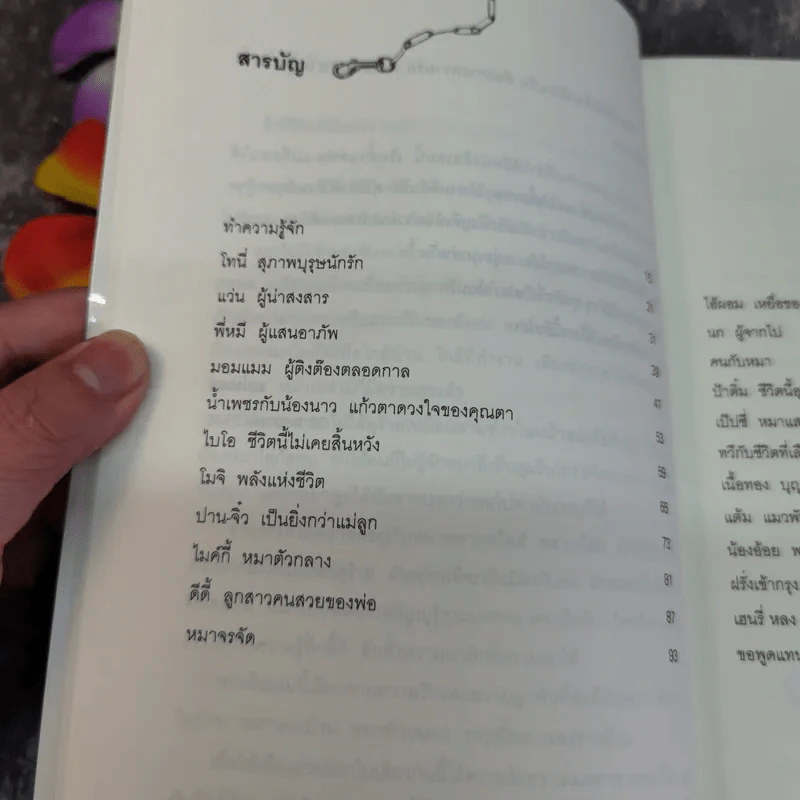 สารบัญ
ทำความรู้จัก
โทนี่ สุภาพบุรุษนักรัก
แว่น ผู้น่าสงสาร
พี่หมี ผู้แสนอาภัพ
มอมแมม ผู้ติงต๊องตลอดกาล
น้ำเพชรกับน้องนาว แก้วตาดวงใจของคุณตา
ไบโอ ชีวิตนี้ไม่เคยสิ้นหวัง
โมจิ พลังแห่งชีวิต
ปาน-จิ๋ว เป็นยิ่งกว่าแม่ลูก
ไมค์กี้ หมาตัวกลาง
ดีดี้ ลูกสาวคนสวยของพ่อ
หมาจรจัด
21
31
39
47
53
59
65
73
81
87
93
โอ้ผอม เหยื่อของ
นก ผู้จากไป
คนกับหมา
ป้าติ๋ม ชีวิตนี้
เป๊ปซี่ หมาแส
ทวีกับชีวิตที่
เนื้อทอง
แต้ม แมว
น้องอ้อย
ฝรั่งเข้ากรุง
เฮนรี่ หลง
ขอพูดแทน